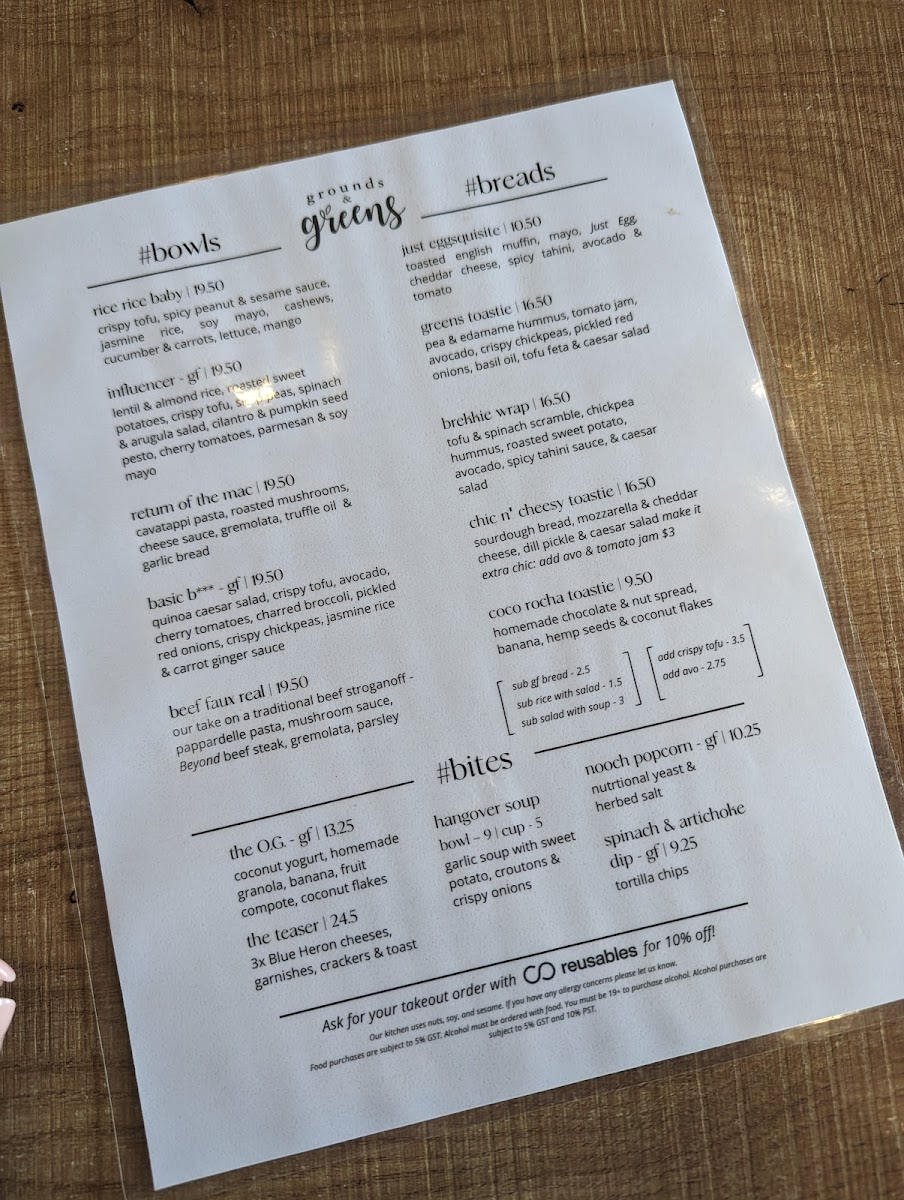 grounds
&
greens
#bowls
rice rice baby | 19.50
crispy tofu, spicy peanut & sesame sauce,
jasmine rice, soy mayo, cashews,
cucumber & carrots, lettuce, mango
influencer - gf | 19.50
lentil & almond rice, roasted sweet
potatoes, crispy tofu, peas, spinach
& arugula salad, cilantro & pumpkin seed
pesto, cherry tomatoes, parmesan & soy
mayo
return of the mac | 19.50
cavatappi pasta, roasted mushrooms,
cheese sauce, gremolata, truffle oil &
garlic bread
basic b*** - gf | 19.50
quinoa caesar salad, crispy tofu, avocado,
cherry tomatoes, charred broccoli, pickled
red onions, crispy chickpeas, jasmine rice
& carrot ginger sauce
beef faux real | 19.50
our take on a traditional beef stroganoff -
pappardelle pasta, mushroom sauce,
Beyond beef steak, gremolata, parsley
#breads
just eggsquisite | 10.50
toasted english muffin, mayo, Just Egg,
cheddar cheese, spicy tahini, avocado &
tomato
greens toastie | 16.50
pea & edamame hummus, tomato jam,
avocado, crispy chickpeas, pickled red
onions, basil oil, tofu feta & caesar salad
brehkie wrap | 16.50
tofu & spinach scramble, chickpea
hummus, roasted sweet potato,
avocado, spicy tahini sauce, & caesar
salad
chic n' cheesy toastie | 16.50
sourdough bread, mozzarella & cheddar
cheese, dill pickle & caesar salad make it
extra chic: add avo & tomato jam $3
coco rocha toastie | 9.50
homemade chocolate & nut spread,
banana, hemp seeds & coconut flakes
sub gf bread - 2.5
sub rice with salad - 1.5
sub salad with soup - 3
add crispy tofu - 3.5
add avo - 2.75
#bites
the O.G. - gf | 13.25
coconut yogurt, homemade
granola, banana, fruit
compote, coconut flakes
the teaser | 24.5
3x Blue Heron cheeses,
garnishes, crackers & toast
hangover soup
bowl – 9 | cup - 5
garlic soup with sweet
potato, croutons &
crispy onions
nooch popcorn - gf | 10.25
nutrtional yeast &
herbed salt
spinach & artichoke
dip - gf | 9.25
tortilla chips
Ask for your takeout order with reusables for 10% off!
Our kitchen uses nuts, soy, and sesame. If you have any allergy concerns please let us know.
Food purchases are subject to 5% GST. Alcohol must be ordered with food. You must be 19+ to purchase alcohol. Alcohol purchases are
subject to 5% GST and 10% PST.